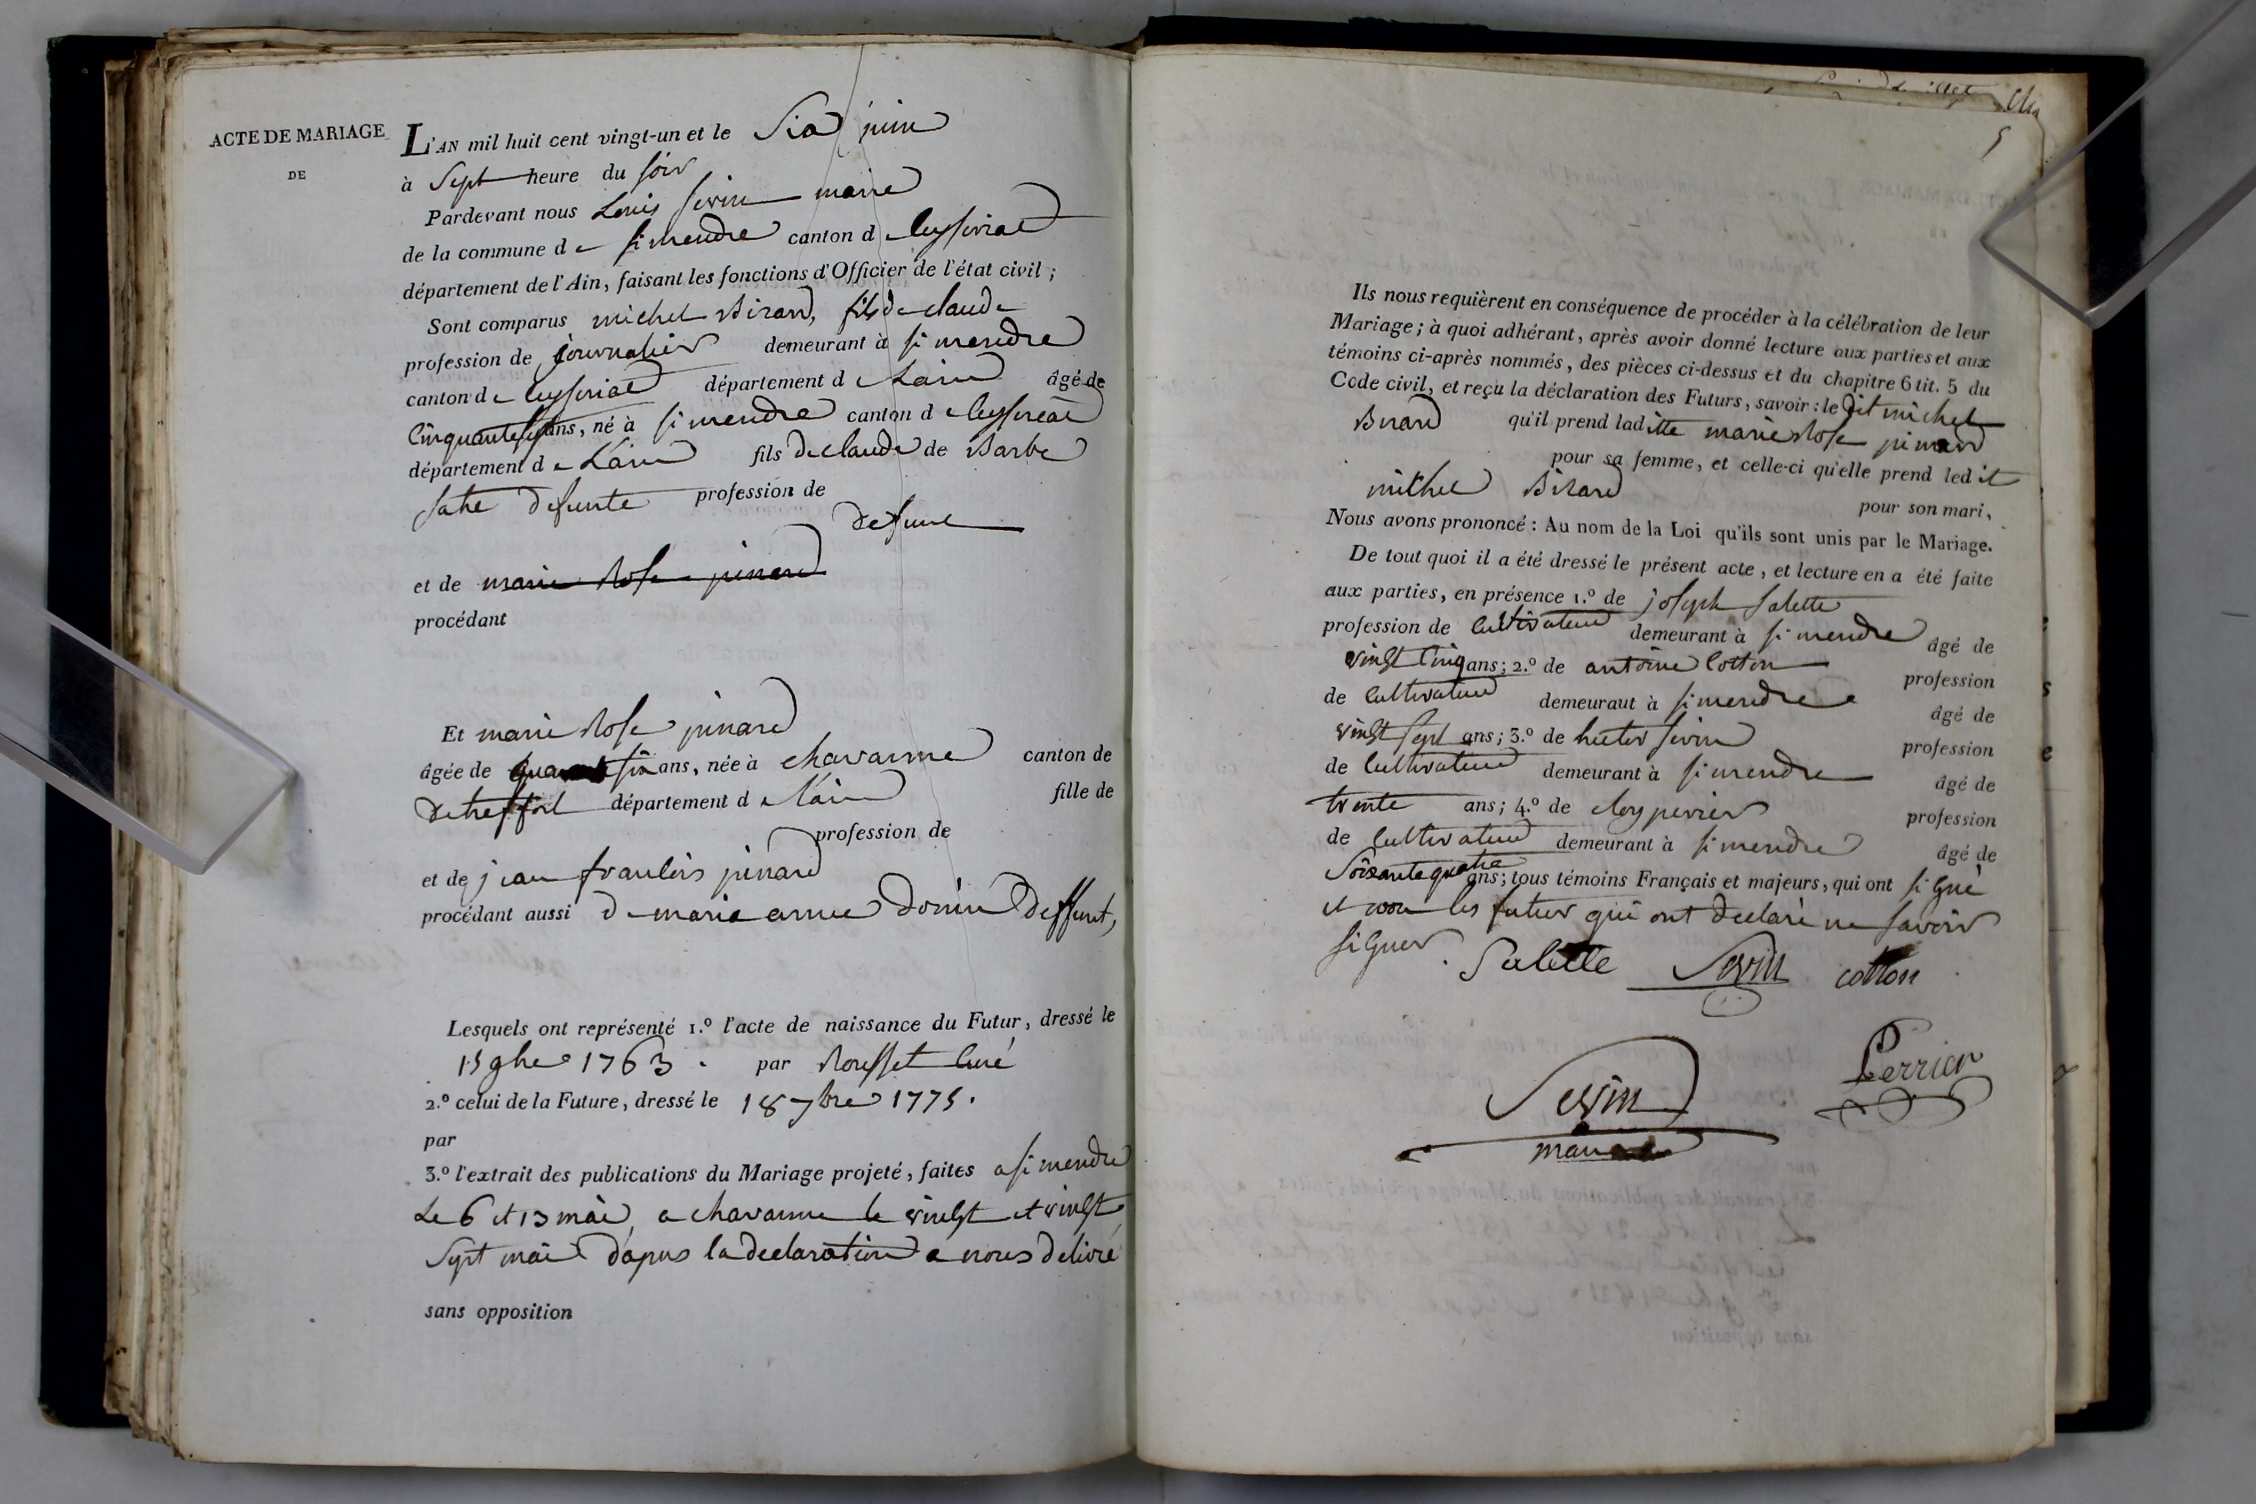 ACTE DE MARIAGE
DE
L'AN mil huit cent vingt-un et le Six juin
à Sept heure du soir
Pardevant nous Louis sevin maire
de la commune de simendre canton de
département de l'Ain, faisant les fonctions d'Officier de l'état civil ;
Sont comparus michel Birard, fils de claude
profession de journalier demeurant à simendre
canton de département de Lain âgé de
Cinquante ans, né à simendre canton de
département de Lain fils de claude de Barbe
defunte profession de
defunt
et de marie Rose pinard
procédant
Et marie Rose pinard
âgée de ans, née à chavanne canton de
de treffort département de Lain fille de
profession de
et de jean franlois pinard
procédant aussi de marie anne Deffunt,
Lesquels ont représenté 1.º l'acte de naissance du Futur, dressé le
1763. par Rousset Curé
2.º celui de la Future, dressé le 18 7bre 1775.
par
3.º l'extrait des publications du Mariage projeté, faites a simendre
Le 6 et 13 mai, a chavanne le vinlgt et vinlgt
Sept mai dapres la declaration a nous delivré
sans opposition
5
Ils nous requièrent en conséquence de procéder à la célébration de leur
Mariage ; à quoi adhérant, après avoir donné lecture aux parties et aux
témoins ci-après nommés, des pièces ci-dessus et du chapitre 6 tit. 5 du
Code civil, et reçu la déclaration des Futurs, savoir : le dit michel
Birard qu'il prend laditte marie Rose pinard
pour sa femme, et celle-ci qu'elle prend ledit
michel Birard
pour son mari,
Nous avons prononcé : Au nom de la Loi qu'ils sont unis par le Mariage.
De tout quoi il a été dressé le présent acte, et lecture en a été faite
aux parties, en présence 1.º de joseph Salette
profession de Cultivateur demeurant à simendre âgé de
vinlgt Cinq ans ; 2.º de antoine Cotton
profession
de Cultivateur demeuraut à simendre âgé de
vinlgt sept ans ; 3.º de sevin
profession
de Cultivateur demeurant à simendre âgé de
trente ans ; 4.º de perrier
profession
de Cultivateur demeurant à simendre âgé de
Soixante quatre ans ; tous témoins Français et majeurs, qui ont siGné
et non les futur qui ont declaré ne savoir
siGner.
Salette Sevin cotton
Perrier
Sevin
maire